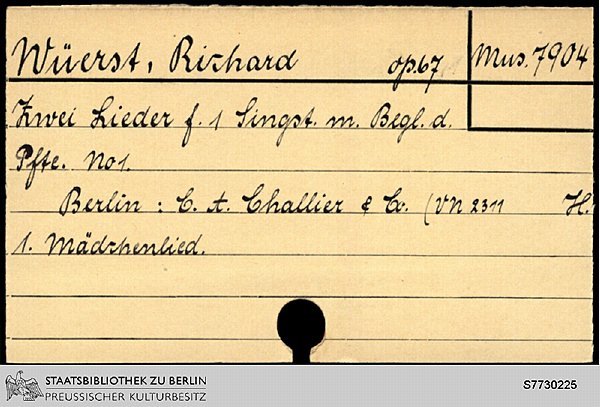 Wüerst, Richard op.67 Mus.7904
Zwei Lieder f. 1 Singst. m. Begl. d.
Pfte. No 1.
Berlin : C. A. Challier & Co. (VN 2311 H.
1. Mädchenlied.
STAATSBIBLIOTHEK ZU BERLIN
PREUSSISCHER KULTURBESITZ
S7730225